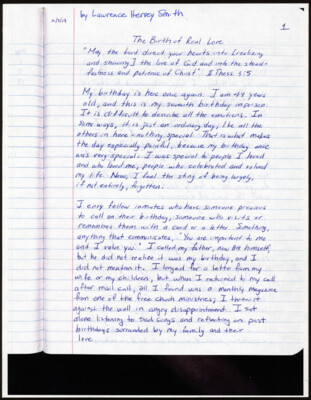 by Lawrence Hervey Smith
1
The Birth of Real Love
"May the Lord direct your hearts into
and showing I the love of God and into the stead-
fastness and patience of Christ." II Thess 3:5
My birthday is here once again. I am 49 years
old, and this is my seventh birthday in prison.
It is difficult to describe all the emotions. In
some ways, it is just an ordinary day, like all the
others in here: nothing special. That is what makes
the day especially painful, because my birthday once
was very special. I was special to people I loved
and who loved me, people who celebrated and valued
my life. Now, I feel the sting of being largely,
if not entirely, forgotten.
I envy fellow inmates who have someone precious
to call on their birthday, someone who visits or
remembers them with a card or a letter. Something,
anything that communicates, "You are important to me
and I value you." I called my father, now 84 himself,
but he did not realize it was my birthday, and I
did not mention it. I longed for a letter from my
wife or my children, but when I returned to my cell
after mail call, all I found was a monthly magazine
from one of the free church ministries; I threw it
against the wall in angry disappointment. I sat
alone listening to sad songs and reflecting on past
birthdays surrounded by my family and their
love.